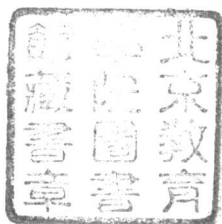 北京教育
学院圖書
館藏書章